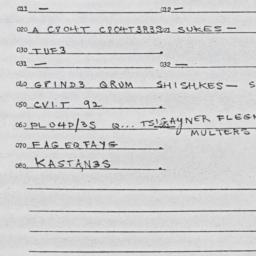 011 — 012 —
020 A CPO4T CPO4T3R3S SUKES —
030 TUF3
031 — 032 —
040 GPIND3 QRUM SHISHKES — S
050 CVI.T 92
060 PLO4D/3S Q... TS! GAYNER FLEGM
MULTERS
070 FAG EQ FAYG
080 KASTAN3S